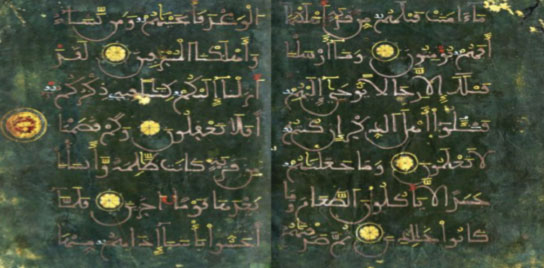 ما ءامنت قبلهم من قرية أهلكنها
أفهم يومنون وما أرسلنا
قبلك إلا رجالا يوحى إليهم
فسئلوا أهل الذكر إن كنتم
لا تعلمون وما جعلنهم
جسدا لا ياكلون الطعام وما
كانوا خلدين ثم صدقنهم
الوعد فأنجينهم ومن نشاء
وأهلكنا المسرفين لقد
أنزلنا إليكم كتبا فيه ذكركم
أفلا تعقلون وكم قصمنا
من قرية كانت ظالمة وأنشأنا
بعدها قوما ءاخرين فلما
أحسوا بأسنا إذا هم منها